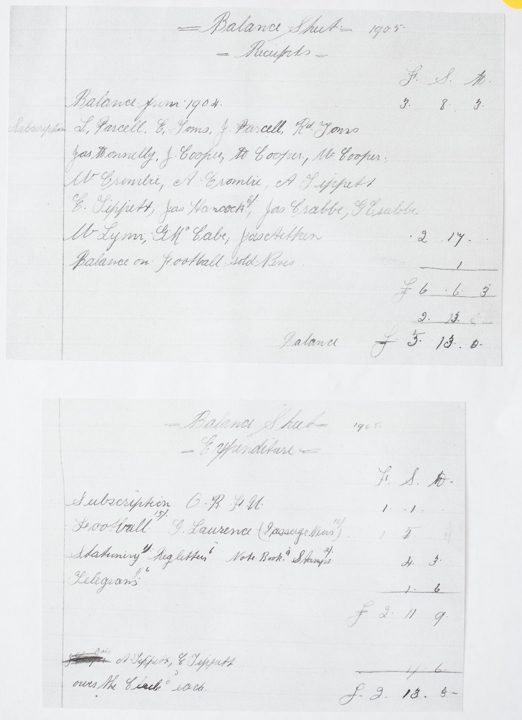 Balance Sheet 1905
Receipts
£. S. D.
Balance from 1904. 3. 8. 3.
Subscription L. Parcell. E. Toms. J Parcell, Rd Toms
Jas Donnelly, J. Cooper, D Cooper, W Cooper.
W Crombie, A Crombie. A Tippett
E. Tippett, Jas Hancock, Jas Crabbe, G Crabbe.
W Lynn, G Mc Cabe, Jas Aitken 2 17.
Balance on Football sold 1
£ 6 6 3
2.
Balance £ 3. 13. 6.
Balance Sheet 1905
Expenditure
£. S. D.
Subscription O. R F. U. 1. 1.
Football G. Laurence (Passage
Stationery Note Book Stamps 4 3
Telegrams 1 6
£ 2 11 9
A Tippett, E Tippett
owes the Club each. 6
£ 2. 13. 3